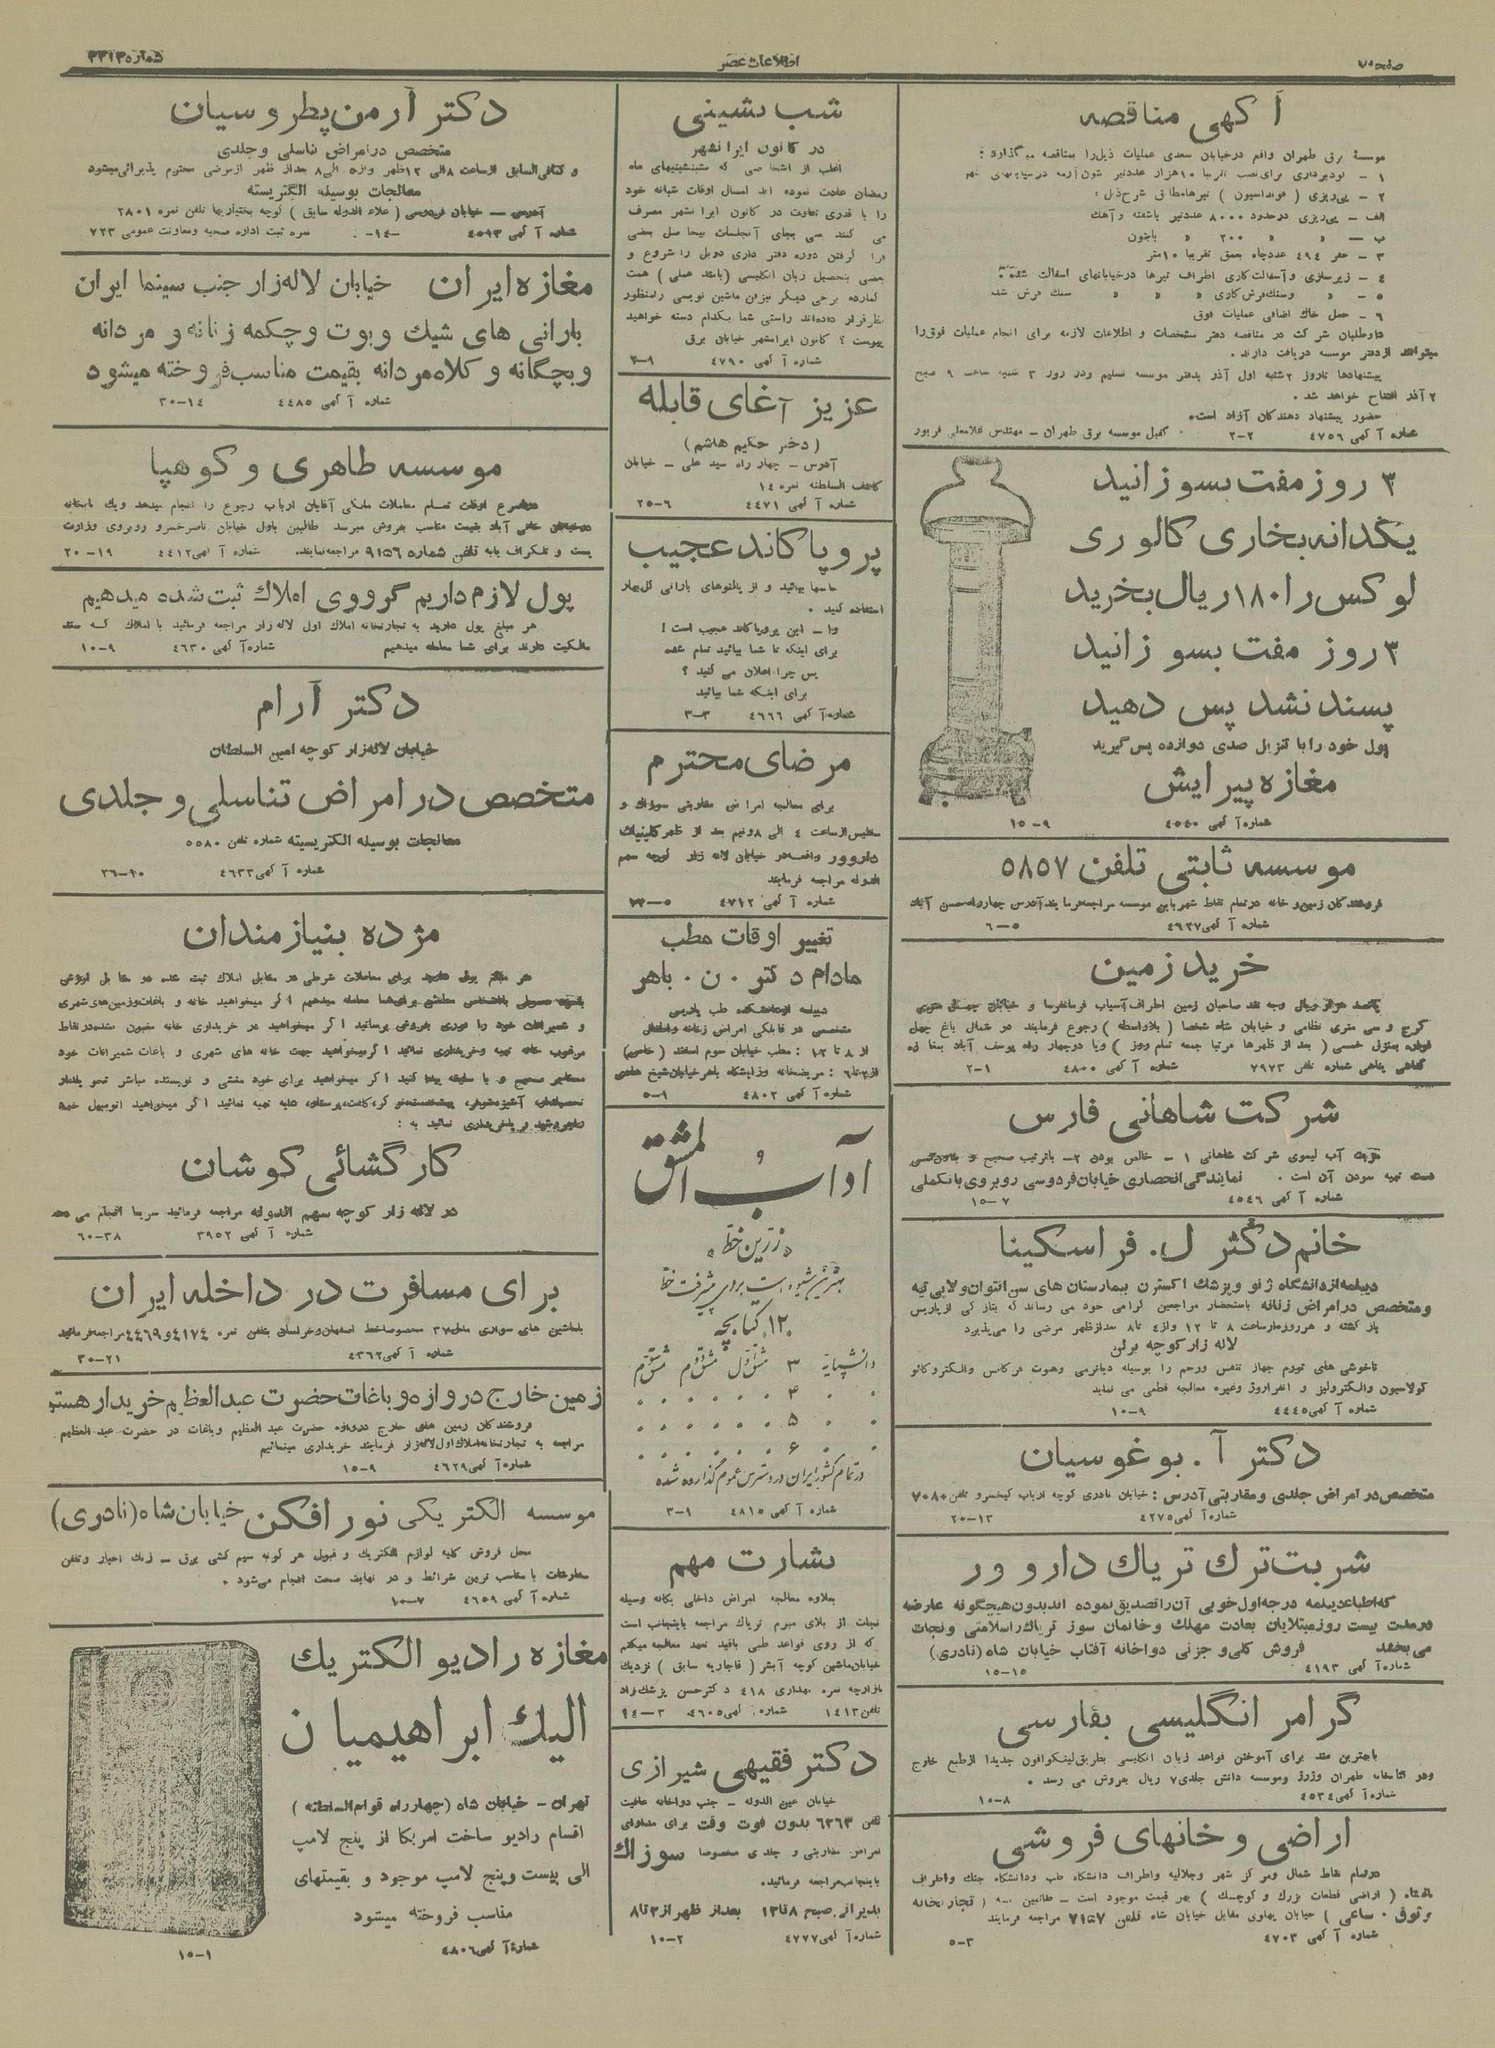 صفحه ۷
اطلاعات عصر
شماره ۳۳۱۳
آگهی مناقصه
موسسهٔ برق طهران واقع درخیابان سعدی عملیات ذیل‌را بمناقصه میگذارد :
۱ - گودبرداری برای نصب تقریبا ۱۰هزار عددتیر
۲ - پی‌ریزی ( فونداسیون ) تیرهامطابق شرح‌ذیل :
الف - پی‌ریزی درحدود ۸۰۰۰ عددتیر باشفته وآهک
ب - » » ۲۰۰ » بابتون
۳ - حفر ۴۹۴ عددچاه بعمق تقریبا ۱۰متر
۴ - زیرسازی وآسفالت‌کاری اطراف تیرها درخیابانهای اسفالت شده.
۵ - » وسنگ‌فرش‌کاری » » » سنگ فرش شده
۶ - حمل خاک اضافی عملیات فوق
داوطلبان شرکت در مناقصه دفتر مشخصات و اطلاعات لازمه برای انجام عملیات فوق‌را
میتوانند ازدفتر موسسه دریافت دارند.
پیشنهادها تاروز ۲شنبه اول آذر بدفتر موسسه تسلیم ودر روز ۳ شنبه ساعت ۹ صبح
۲ آذر افتتاح خواهد شد .
حضور پیشنهاد دهندگان آزاد است.
شماره آگهی ۴۷۵۶ ۲-۲ کفیل موسسه برق طهران - مهندس غلامعلی فریور
۳ روز مفت بسوزانید
یکدانه بخاری کالوری
لوکس را ۱۸۰ ریال بخرید
۳ روز مفت بسوزانید
پسند نشد پس دهید
پول خود را با تنزیل صدی دوازده پس گیرید
مغازه پیرایش
شماره آگهی ۴۵۴۰ ۹-۱۵
موسسه ثابتی تلفن ۵۸۵۷
شماره آگهی ۴۶۳۷ ۵-۶
خرید زمین
کرج و سی متری نظامی و خیابان شاه شخصا ( بلاواسطه ) رجوع فرمایند در شمال باغ چهل
فواره بمنزل شمسی ( بعد از ظهرها مرتبا جمعه تمام روز ) ویا درچهار راه یوسف آباد بمغازه
پناهی شماره تلفن ۷۹۷۳ شماره آگهی ۴۸۰۰ ۱-۲
شرکت شاهانی فارس
مزیت آب لیموی شرکت شاهانی ۱ - خالص بودن ۲- باترتیب صحیح و
دست تهیه نمودن آن است . نمایندگی انحصاری خیابان فردوسی روبروی بانک‌ملی
شماره آگهی ۴۵۴۶ ۷-۱۵
خانم دکتر ل. فراسکینا
دیپلمه ازدانشگاه ژنو وپزشک اکسترن بیمارستان های سن‌آنتوان ولاپی‌تیه
ومتخصص درامراض زنانه باستحضار مراجعین گرامی خود می رساند که بتازگی ازپاریس
باز گشته و هرروزه‌ازساعت ۸ تا ۱۲ واز۴ تا۸ بعدازظهر مرضی را می‌پذیرد
لاله زارکوچه برلن
ناخوشی های تورم جهاز تنفس ورحم را بوسیله دیاترمی
کولاسیون والکترولیز و انفراروژ وغیره معالجه قطعی می نماید
شماره آگهی ۴۴۴۵ ۹-۱۰
دکتر آ. بوغوسیان
متخصص‌در امراض جلدی ومقاربتی آدرس : خیابان نادری کوچه ارباب کیخسرو تلفن ۷۰۸۰
شماره آگهی ۴۲۷۵ ۱۳-۲۰
شربت ترك تریاك دارو ور
که‌اطباءدیپلمه درجه‌اول‌خوبی آن‌راتصدیق‌نموده اندبدون‌هیچگونه عارضه
درمدت بیست روزمبتلایان بعادت مهلک و خانمان سوز تریاك‌راسلامتی ونجات
می‌بخشد فروش کلی‌و جزئی دواخانه آفتاب خیابان شاه (نادری)
شماره‌آگهی ۴۱۹۳ ۱۵-۱۵
گرامر انگلیسی بفارسی
بابهترین متد برای آموختن قواعد زبان انگلیسی بطریق‌لینگوافون جدیدا ازطبع خارج
ودر کتابخانه طهران وژرژ وموسسه دانش جلدی۷ ریال بفروش می رسد .
شماره‌آگهی ۴۵۳۴ ۸-۱۰
اراضی و خانهای فروشی
درتمام نقاط شمال ومرکز شهر وجلالیه واطراف دانشگاه طب ودانشگاه جنگ واطراف
( اراضی قطعات بزرگ و کوچک ) بهر قیمت موجود است - طالبین به ( تجارتخانه
وثوق . ساعی ) خیابان پهلوی مقابل خیابان شاه تلفن ۷۱۵۷ مراجعه فرمایند
شماره آگهی ۴۷۰۳ ۳-۵
شب نشینی
در کانون ایرانشهر
اغلب از اشخاصی که شب‌نشینیهای ماه
رمضان عادت نموده اند امسال اوقات شبانه خود
را با قدری تفاوت در کانون ایرانشهر مصرف
می کنند یعنی بجای آنجلسات بیحاصل بعضی
فرا گرفتن دوره دفتر داری دوبل را شروع و
بعضی بتحصیل زبان انگلیسی (بامتد عملی) همت
گمارده برخی دیگر نیزفن ماشین نویسی رامنظور
نظرقرار داده‌اند راستی شما بکدام دسته خواهید
پیوست ؟ کانون ایرانشهر خیابان برق
شماره آگهی ۴۷۹۰
عزیز آغای قابله
( دختر حکیم هاشم )
آدرس - چهار راه سید علی - خیابان
کاشف السلطنه نمره ۱۴
شماره آگهی ۴۴۷۱ ۶-۲۵
پروپاکاند عجیب
شما بیائید و از پالتوهای بارانی گل‌بهار
استفاده کنید .
وا - این پروپاکاند عجیب است !
برای اینکه تا شما بیائید تمام شده
پس چرا اعلان می کنید ؟
برای اینکه شما بیائید
شماره‌آگهی ۴۶۶۶ ۳-۳
مرضای محترم
برای معالجه امراض مقاربتی سوزاك و
سفلیس‌ازساعت ۴ الی ۸ونیم بعد از ظهر کلینیك
داروور واقعه‌در خیابان لاله زار کوچه مهم
الدوله مراجعه فرمایند
شماره آگهی ۴۷۱۲
تغییر اوقات مطب
مادام دکتر . ن . باهر
دیپلمه ازدانشکده طب پاریس
متخصصی در قابلگی امراض زنانه واطفال
از ۸ تا ۱۲ : مطب خیابان سوم اسفند (خاص)
از۳تا۶ : مریضخانه وزایشگاه باهرخیابان‌شیخ هادی
شماره آگهی ۴۸۰۲ ۱-۵
آداب المشق
« زرین خط »
بهترین شیوه است برای پیشرفت خط
۱۲ کتابچه
دانشپایه ۳ مشق اول مشق دوم مشق سوم
» ۴ » » »
» ۵ » » »
» ۶ » » »
در تمام کشور ایران در دسترس عموم گذارده شده
شماره آگهی ۴۸۱۵ ۱-۳
بشارت مهم
بعلاوه معالجه امراض داخلی یگانه وسیله
نجات از بلای مبرم تریاك مراجعه باینجانب است
که از روی قواعد طبی باقید تعهد معالجه میکنم
خیابان‌ماشین کوچه آبشر ( قاجاریه سابق ) نزدیك
بازارچه نمره بهداری ۴۱۸ دکترحسن پزشك‌زاد
تلفن۱۴۱۳ شماره آگهی ۴۶۰۵ ۳-۱۴
دکتر فقیهی شیرازی
خیابان عین الدوله - جنب دواخانه عافیت
تلفن ۶۳۶۳ بدون فوت وقت برای مداوای
امراض مقاربتی و جلدی مخصوصا سوزاك
باینجانب‌مراجعه فرمائید.
پذیرائی صبح ۸تا۱۲ بعداز ظهر از۳تا۸
شماره آگهی ۴۷۷۷ ۲-۱۰
دکتر آرمن پطروسیان
متخصص درامراض تناسلی وجلدی
کمافی‌السابق ازساعت ۸الی ۱۲ظهر واز۴ الی۸ بعداز ظهر ازمرضی محترم پذیرائی‌میشود
معالجات بوسیله الکتریسته
آدرس - خیابان فردوسی ( علاء الدوله سابق ) کوچه بختیاریها تلفن نمره ۲۸۰۱
شماره آگهی ۴۵۹۳ نمره ثبت اداره صحیه ومعاونت عمومی ۷۲۳
مغازه ایران خیابان لاله‌زار جنب سینما ایران
بارانی های شیك و بوت و چکمه زنانه و مردانه
و بچگانه و کلاه‌مردانه بقیمت مناسب فروخته میشود
شماره آگهی ۴۴۸۵ ۱۴-۳۰
موسسه طاهری و کوهپا
دراسرع اوقات تمام معاملات ملکی آقایان ارباب رجوع را انجام میدهد ویك
آباد بقیمت مناسب بفروش میرسد طالبین باول خیابان ناصرخسرو روبروی وزارت
پست و تلگراف یابه تلفن شماره ۹۱۵۶ مراجعه‌نمایند. شماره آگهی۴۴۱۲ ۱۹-۲۰
پول لازم داریم گرووی املاك ثبت شده میدهیم
هر مبلغ پول دارید به تجارتخانه املاك اول لاله زار مراجعه فرمائید با املاك که سند
مالکیت دارند برای شما معامله میدهیم شماره آگهی ۴۶۳۰ ۹-۱۰
دکتر آرام
خیابان لاله‌زار کوچه امین السلطان
متخصص در امراض تناسلی و جلدی
معالجات بوسیله الکتریسیته شماره تلفن ۵۵۸۰
شماره آگهی ۴۶۳۳
مژده بنیازمندان
و شمیرانات خود را فوری بفروش برسانید اگر میخواهید در خریداری خانه مغبون نشده‌درنقاط
مرغوب خانه تهیه وخریداری نمائید اگرمیخواهید جهت خانه های شهری و باغات شمیرانات خود
مستاجر صحیح و با سلیقه پیدا کنید اگر میخواهید برای خود منشی و نویسنده مباشر
کارگشائی کوشان
در لاله زار کوچه سهم الدوله مراجعه فرمائید سریعا انجام می دهد
شماره آگهی ۳۹۵۲ ۳۸-۶۰
برای مسافرت در داخله ایران
باماشین های سواری مدل۳۷ مخصوصاخط اصفهان‌وخراسان بتلفن نمره ۴۱۷۴و۴۴۶۹مراجعه‌فرمائید
شماره آگهی۴۳۶۲ ۲۱-۳۰
زمین خارج دروازه و باغات حضرت عبدالعظیم خریدار هستم
فروشندگان زمین های خارج دروازه حضرت عبدالعظیم وباغات در حضرت عبدالعظیم
مراجعه به تجارتخانه‌املاك‌اول‌لاله‌زار فرمایند خریداری مینمائیم
شماره آگهی۴۶۲۹ ۹-۱۵
موسسه الکتریکی نورافکن خیابان شاه (نادری)
محل فروش کلیه لوازم الکتریك و قبول هر گونه سیم کشی برق - زنك اخبار وتلفن
سفارشات با مناسب ترین شرائط و در نهایت صحت انجام می‌شود .
شماره آگهی ۴۶۵۹ ۷-۱۰
مغازه رادیو الکتریك
الیك ابراهیمیان
تهران - خیابان شاه (چهارراه قوام‌السلطنه )
اقسام رادیو ساخت امریکا از پنج لامپ
الی بیست وپنج لامپ موجود و بقیمتهای
مناسب فروخته میشود
شماره‌آگهی ۴۸۰۶ ۱-۱۵